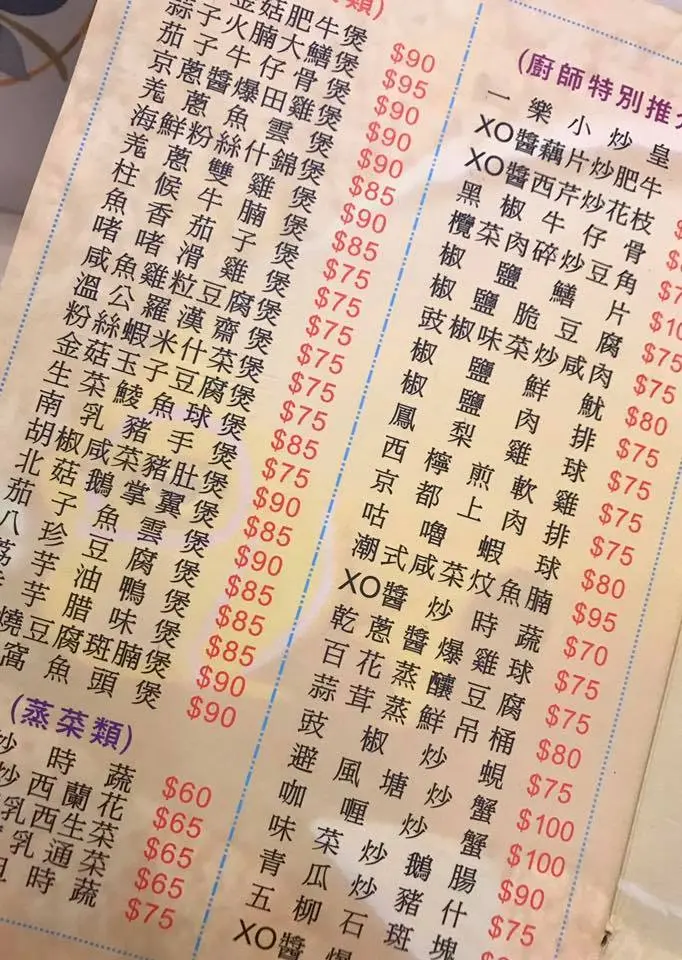 類)
金菇肥牛煲 $90
蒜子火腩大鱔煲 $95
茄子牛仔骨煲 $90
京蔥醬爆田雞煲 $90
羌蔥魚雲煲 $90
海鮮粉絲什錦煲 $85
羌蔥雙雞煲 $90
柱候牛腩煲 $85
魚香茄子煲 $75
啫啫滑雞煲 $75
咸魚雞粒豆腐煲 $75
溫公羅漢齋煲 $75
粉絲蝦米什菜煲 $75
金菇玉子豆腐煲 $75
生菜鯪魚球煲 $85
南乳豬手煲 $75
胡椒咸菜豬肚煲 $90
北菇鵝掌翼煲 $85
茄子魚雲煲 $90
八珍豆腐煲 $85
荔芋油鴨煲 $85
芋腊味煲 $85
燒豆腐斑腩煲 $90
窩魚頭煲 $90
(蒸菜類)
炒時蔬 $60
炒西蘭花 $65
乳西生菜 $65
乳通菜 $65
時蔬 $75
(廚師特別推介
一樂小炒皇
XO醬藕片炒肥牛
XO醬西芹炒花枝
黑椒牛仔骨
欖菜肉碎炒豆角
椒鹽鱔片
椒鹽脆豆腐 $75
豉椒味菜炒咸肉 $75
椒鹽鮮魷 $80
椒鹽肉排 $75
鳳梨雞球 $75
西檸煎軟雞 $75
京都上肉排 $75
咕嚕蝦球 $80
潮式咸菜炆魚腩 $95
XO醬炒時蔬 $70
乾蔥醬爆雞球 $75
百花蒸釀豆腐 $75
蒜茸蒸鮮吊桶 $80
豉椒炒蜆 $75
避風塘炒蟹 $100
咖喱炒蟹 $100
味菜炒鵝腸 $90
青瓜炒豬什 $75
五柳石斑塊
XO醬爆